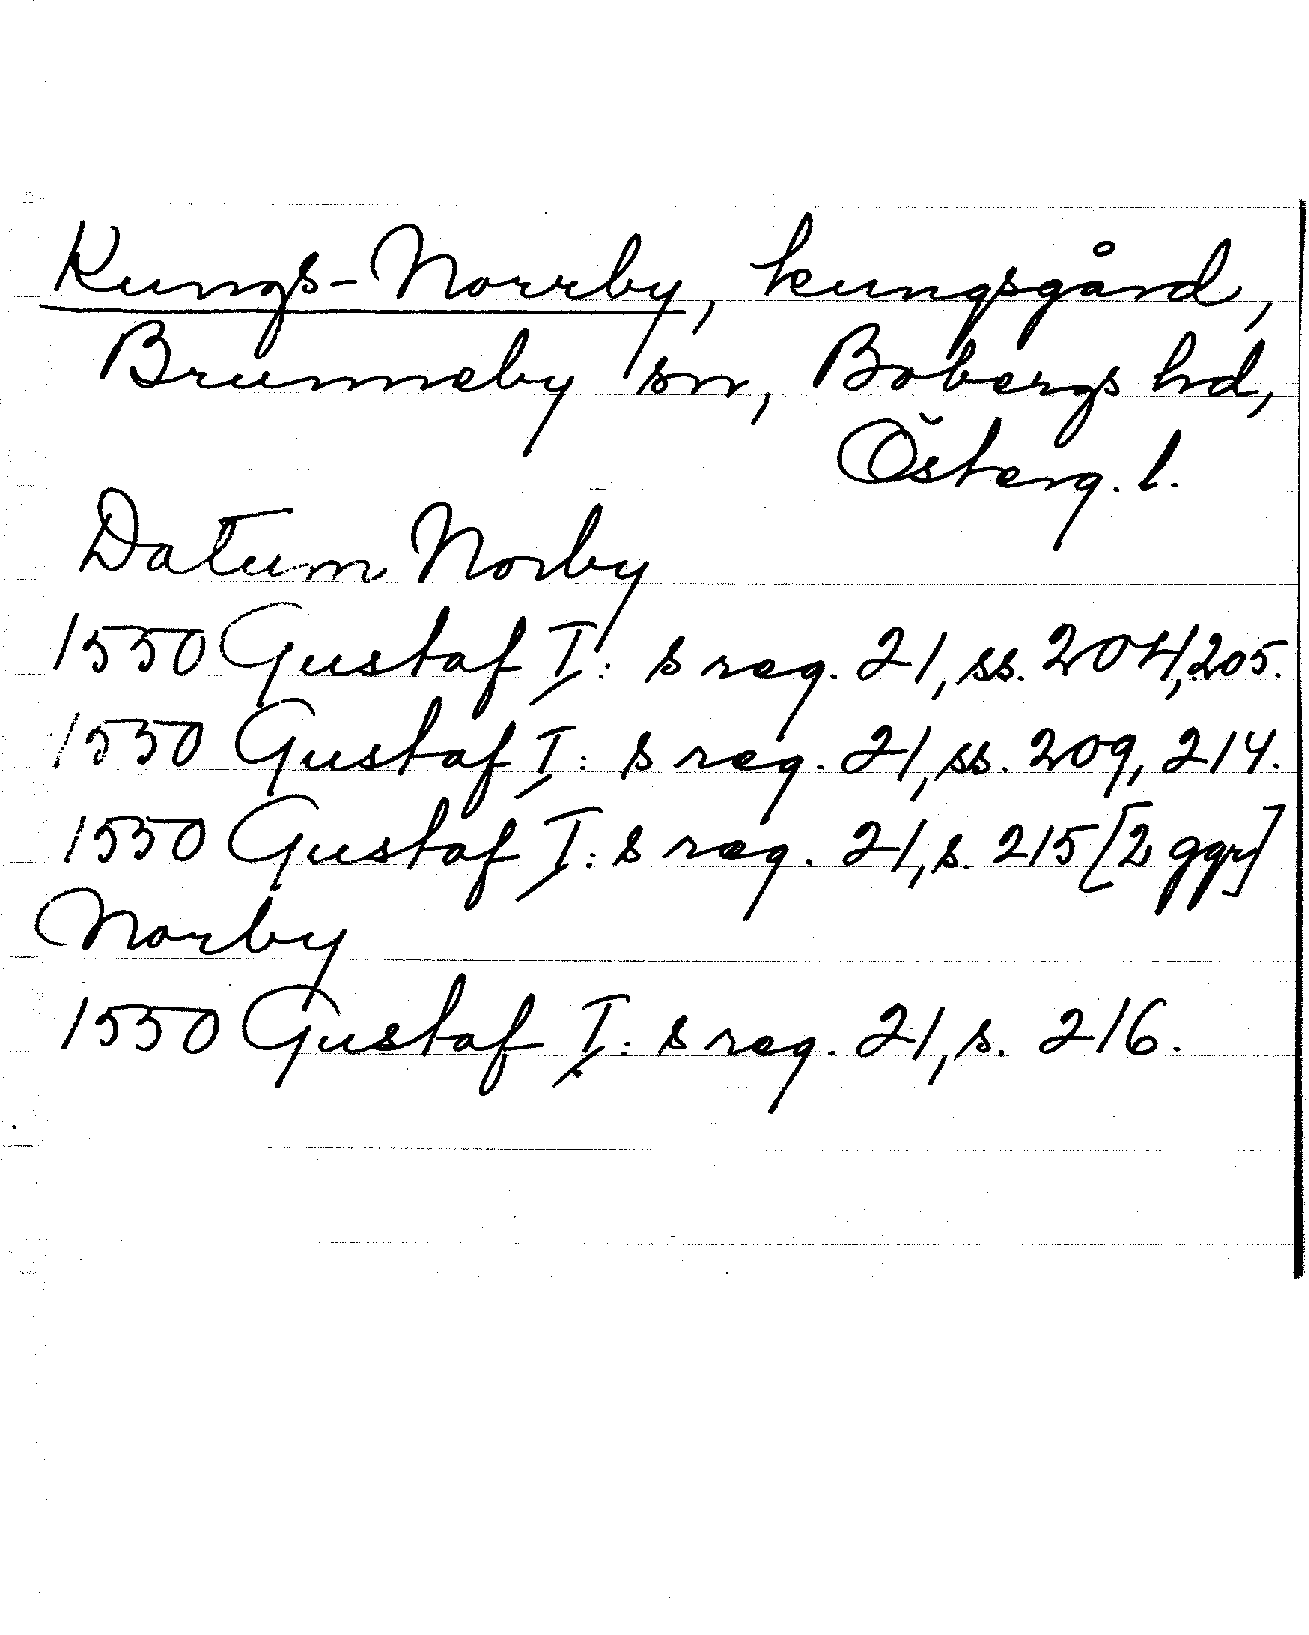 Kungs-Norrby, kungsgård,
Brunneby sn, Bobergs hd,
Österg. l.
Datum Norby
1550 Gustaf I:s reg. 21, ss. 204, 205.
1550 Gustaf I:s reg. 21, ss. 209, 214.
1550 Gustaf I:s reg. 21, s. 215 [2 ggr]
Norby
1550 Gustaf I:s reg. 21, s. 216.